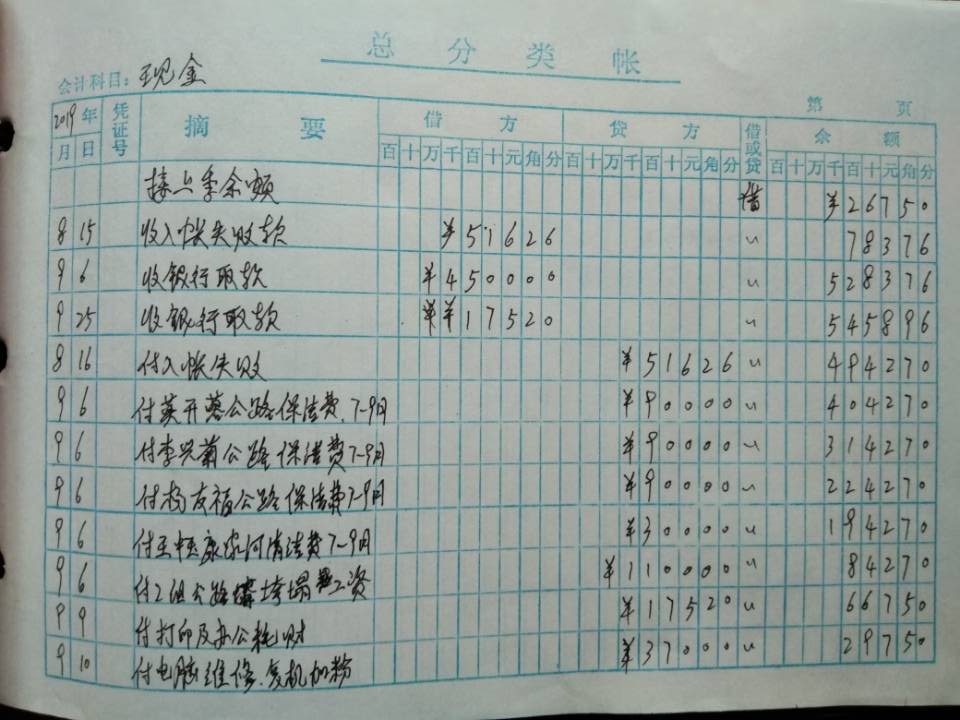 总分类帐
会计科目：现金
第 页
2019年 凭证号 摘要 借方 贷方 借或贷 余额
月 日 百十万千百十元角分 百十万千百十元角分 百十万千百十元角分
接上季余额 借 ¥26750
8 15 收入帐失败款 ¥51626 〃 78376
9 6 收银行取款 ¥450000 〃 528376
9 25 收银行取款 ¥17520 〃 545896
8 16 付入帐失败 ¥51626 〃 494270
9 6 付 开 公路保洁费.7-9月 ¥90000 〃 404270
9 6 付李兴 公路保洁费7-9月 ¥90000 〃 314270
9 6 付杨友福公路保洁费7-9月 ¥90000 〃 224270
9 6 付王 康家河清洁费7-9月 ¥30000 〃 194270
9 6 付2组公路 垮塌 工资 ¥110000 〃 84270
9 9 付打印及办公耗材 ¥17520 〃 66750
9 10 付电脑维修.复机加粉 ¥37000 〃 29750